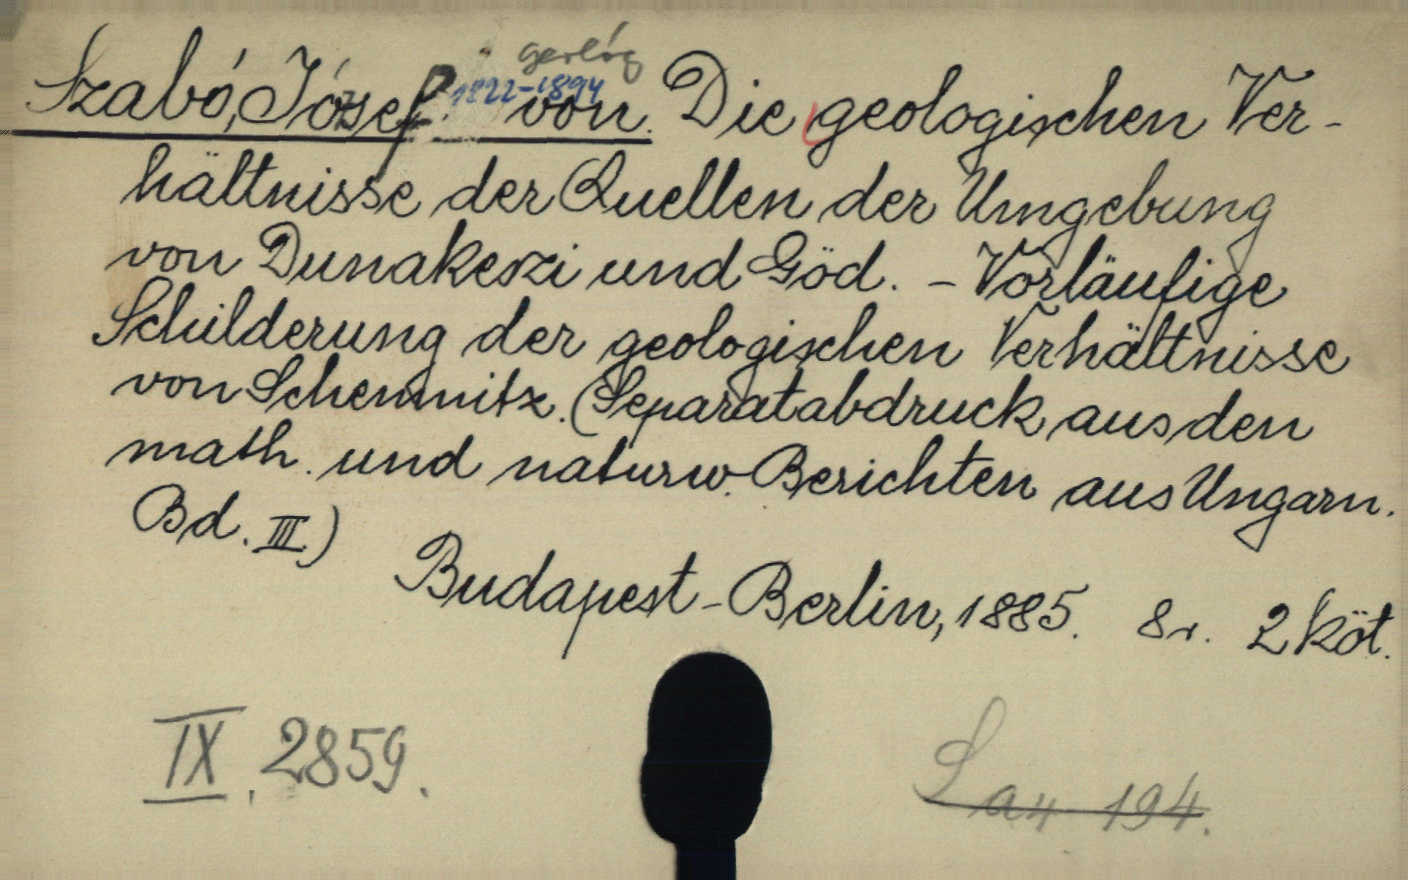 geológ
Szabó, József 1822-1894 von. Die geologischen Ver-
hältnisse der Quellen der Umgebung
von Dunakeszi und Göd. - Vorläufige
Schilderung der geologischen Verhältnisse
von Schemnitz. (Separatabdruck aus den
math. und naturw. Berichten aus Ungarn.
Bd. III.)
Budapest - Berlin, 1885. 8r. 2 köt.
IX. 2859.
194.